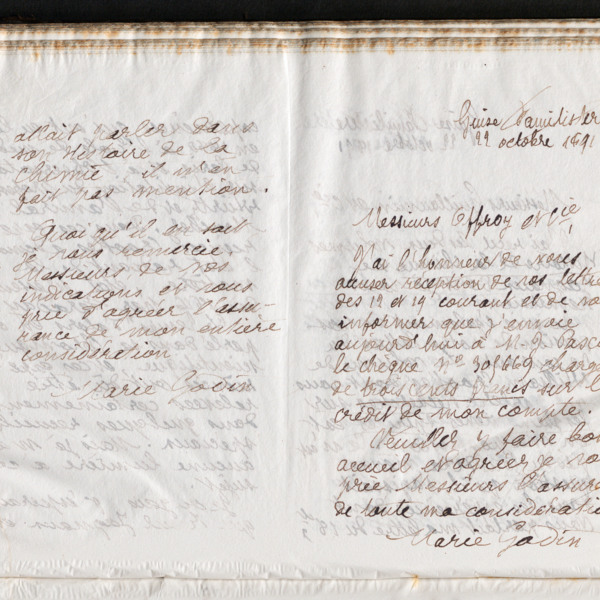 allait parler dans
son histoire de la
chimie il n'en
fait pas mention.
Quoi qu'il en soit
je vous remercie
Messieurs de vos
indications et vous
prie d'agréer l'assu-
rance de mon entière
considération
Marie Godin
Guise Familistère
22 octobre 1891
Messieurs Offroy et Cie
J'ai l'honneur de vous
accuser réception de vos lettre
des 12 et 19 courant et de vo
informer que j'envoie
aujourd'hui à M. J. Pasc
le chèque No 305669 charg
de trois cents francs sur l
crédit de mon compte.
Veuillez y faire bon
accueil et agréez je vo
prie Messieurs l'assura
de toute ma considératio
Marie Godin